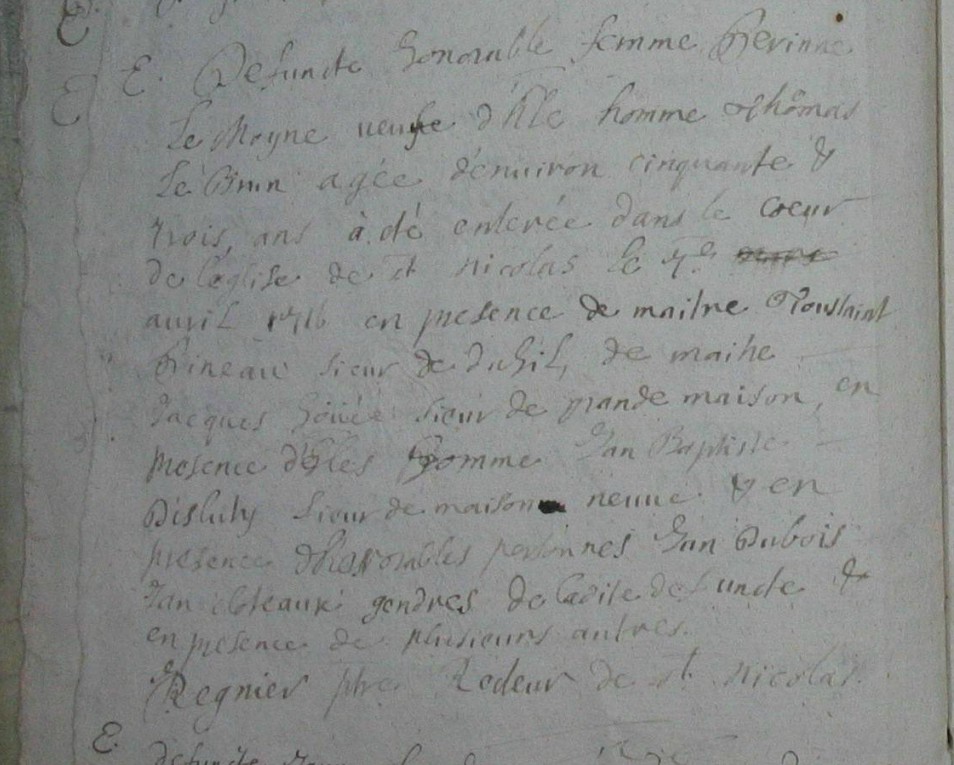 E. Defuncte honorable femme Perinne
Le Moyne veufve d'hble homme Thomas
Le Brun agée d'enuiron cinquante &
trois, ans à été enterée dans le coeur
de l'église de st nicolas le 7e mars
auril 1716 en presence de maitre Toussaint
Pineau sieur de de maitre
Jacques sieur de grande maison, en
presence d'hbles homme Jan Baptiste
sieur de maison neuue & en
presence d'honorables personnes Jan Dubois
Jan gendres de ladite defuncte &
en presence de plusieurs autres.
Regnier ptre Recteur de st Nicolas.
E. defuncte